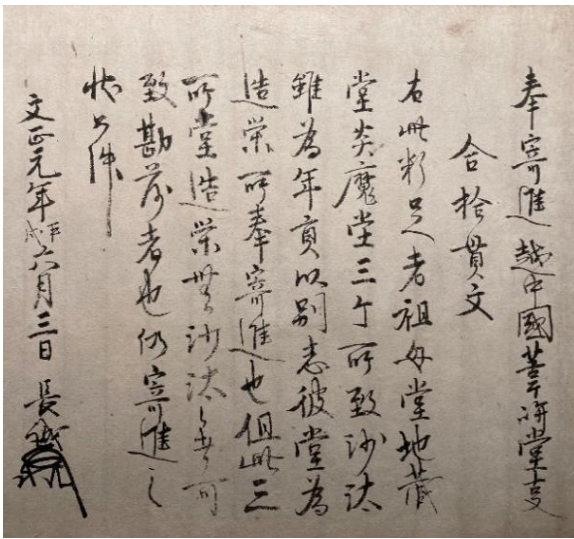 奉寄進越中國芦峅堂事
合拾貫文
右此料足者祖母堂地蔵
堂炎魔堂三ケ所致沙汰
雖為年貢以別志彼堂為
造栄所奉寄進也但此三
所堂造栄無沙汰候者可
致勘落者也仍寄進之
状如件
文正元年丙戌六月三日 長誠